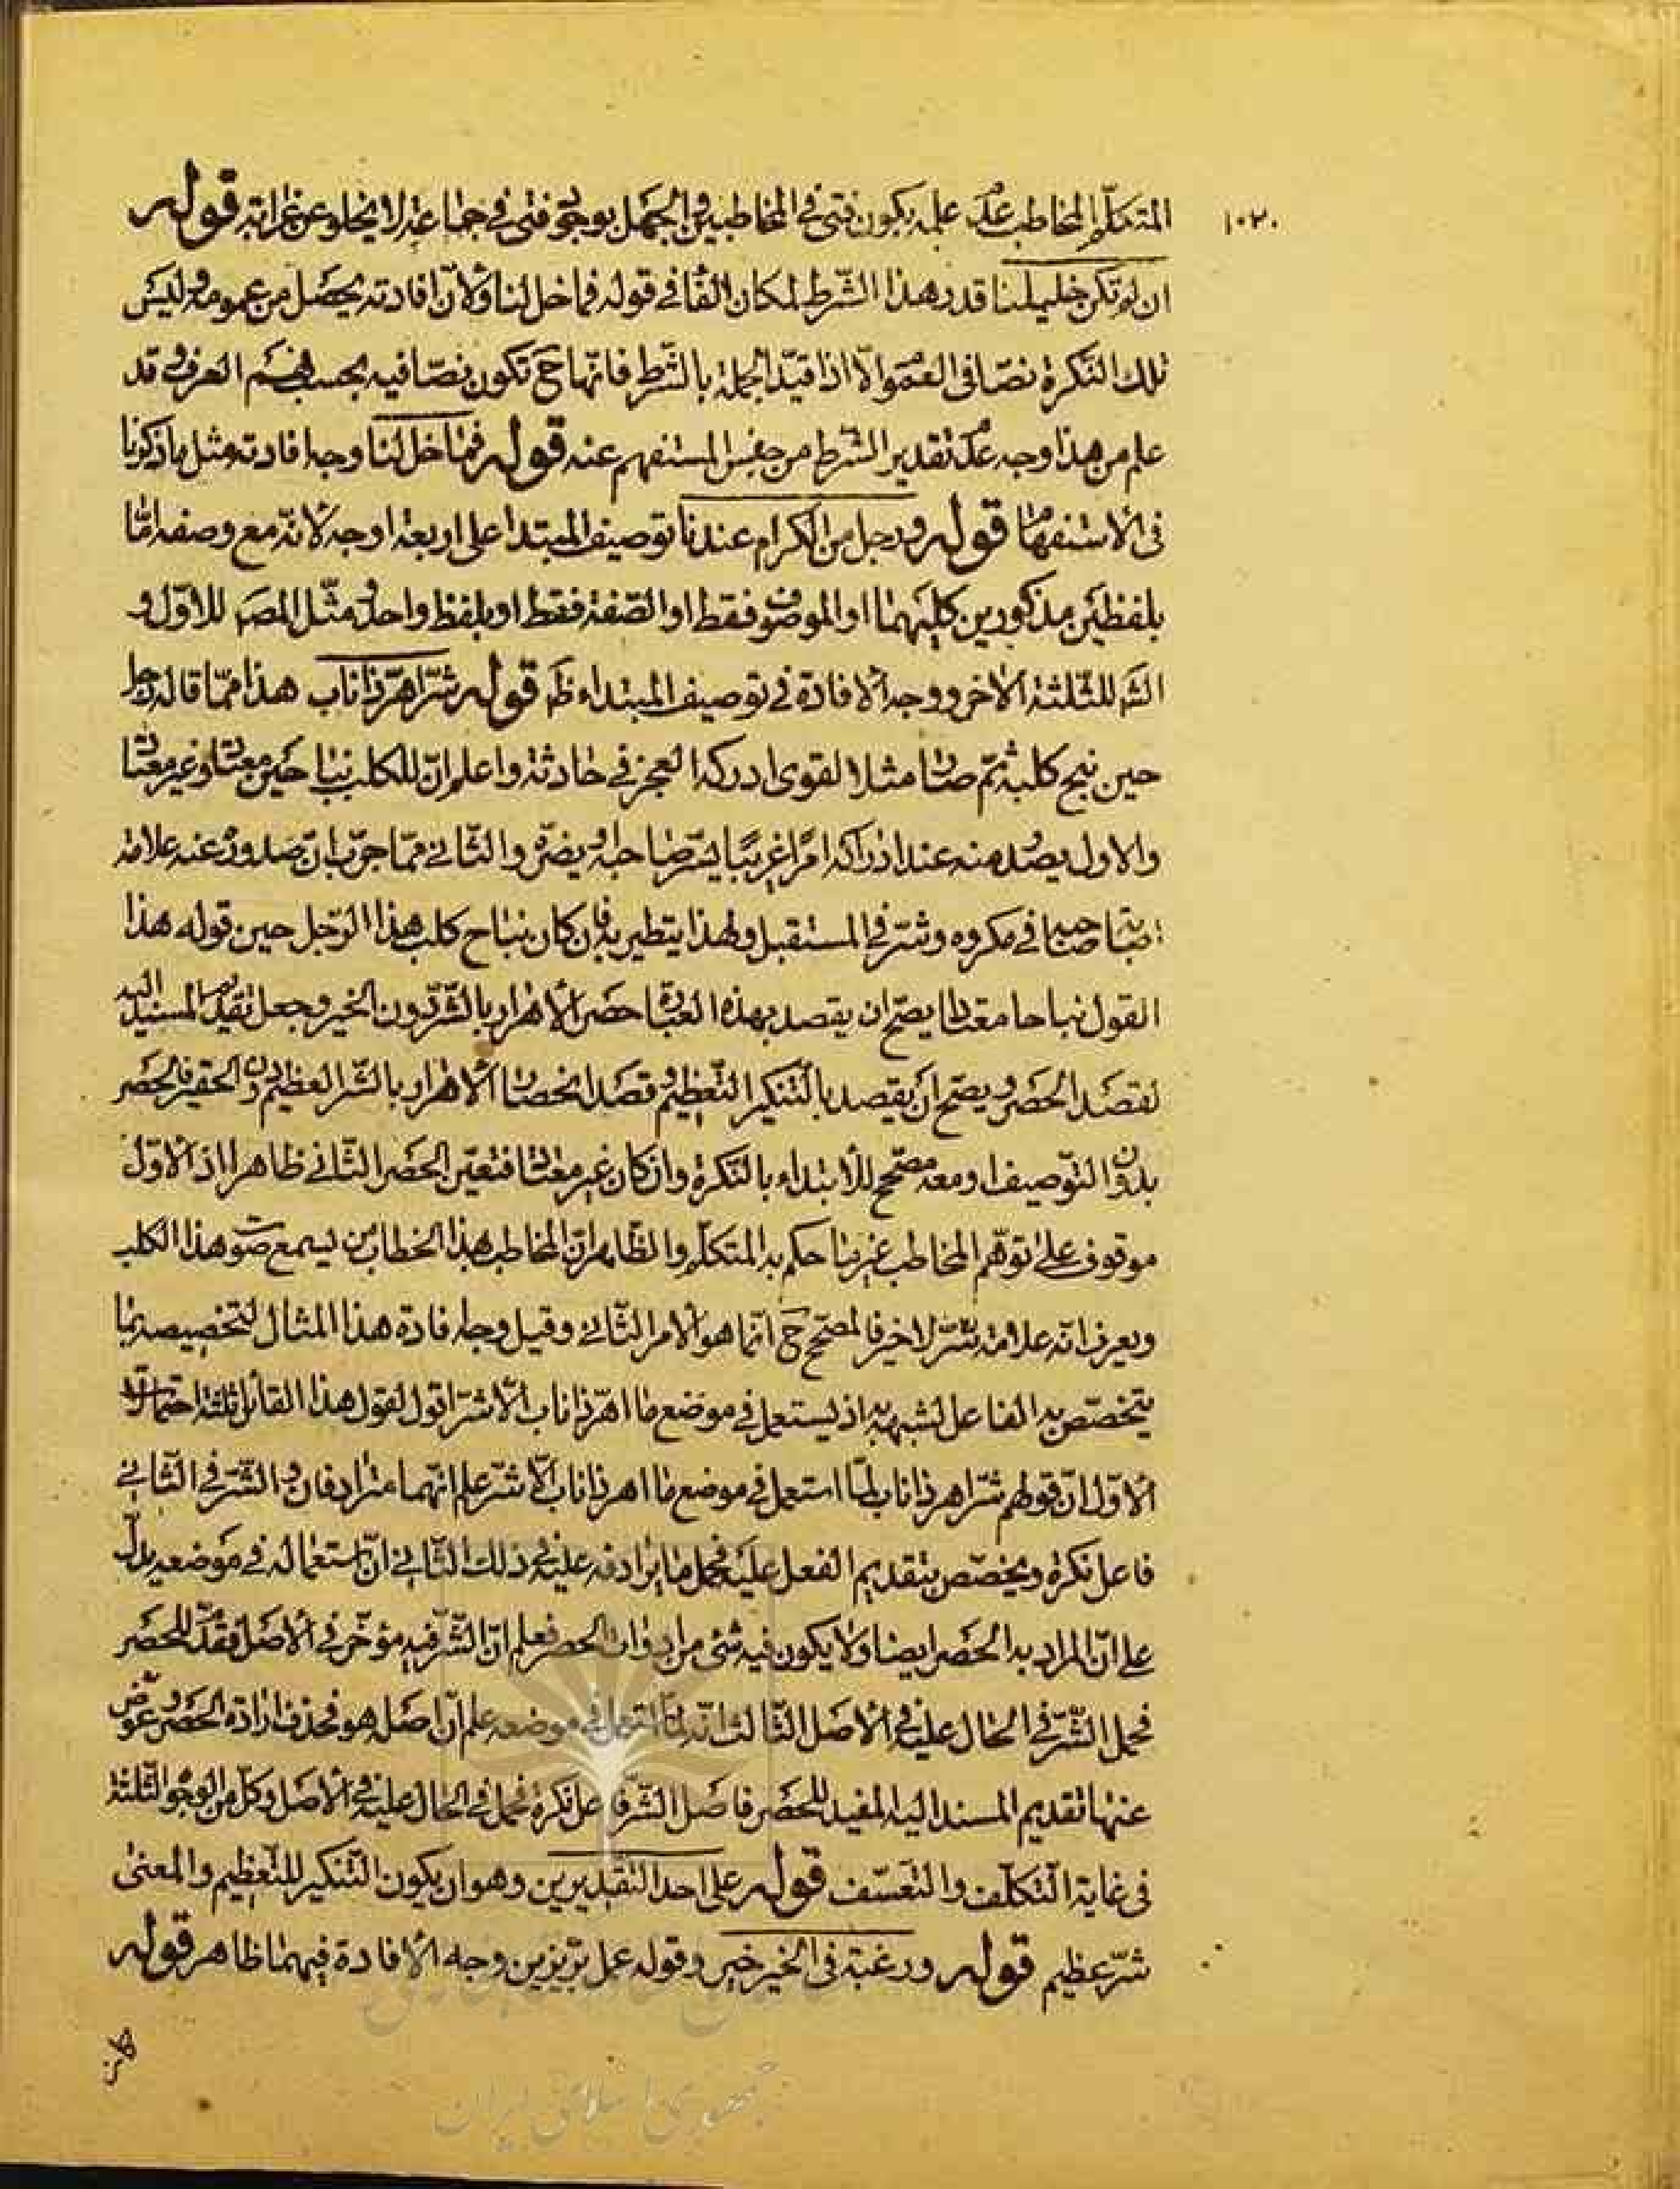 ١٠٢٠
المتكلّم المخاطب عدم علمه بكون فتى في المخاطبين والجهل بوجود فتى في جماعة لا يخلو عن غرابة قوله
ان لم تكن خليلنا قدر هذا الشّرط لمكان الفا في قوله فما خل لنا ولأنّ افادته يحصل من عمومه وليس
تلك النّكرة نصّا في العموم الّا اذا قيّد الجملة بالشّرط فانّها ح تكون نصّا فيه بحسب فهم العرف وقد
علم من هذا وجه عدم تقدير الشرط من جنس المستفهم عنه قوله فما خل لنا وجه افادته مثل ما ذكرنا
في الاستفهام قوله ورجل من الكرام عندنا توصيف المبتدا على اربعة اوجه لانّه مع وصفه امّا
بلفظين مذكورين كليهما او الموصوف فقط او الصّفة فقط او بلفظ واحد ومثّل المصَ للاوّل و
الشَ للثّلثة الاخر ووجه الافادة في توصيف المبتداء ظَ قوله شرّ اهرّ ذا ناب هذا ممّا قاله رجل
حين نبح كلبه ثمّ صار مثلا لقوى ادركه العجز في حادثة واعلم انّ للكلب نباحين معتادا وغير معتاد
والاول يصدر منه عند ادراكه امرًا غريبًا يسرّ صاحبه او يضرّه والثّاني ممّا جرّب انّ صدوره عنه علامة
اصابة صاحبه في مكروه وشرّ في المستقبل ولهذا يتطير به فان كان نباح كلب هذا الرّجل حين قوله هذا
القول نباحا معتادا يصحّ ان يقصد بهذه العبارة حصر الأهرار بالشّرّ دون الخير وجعل تقديم المسند اليه
لقصد الحصر ويصحّ ان يقصد بالتّنكير التّعظيم وقصد انحصار الأهرار بالشّر العظيم دون الحقير فالحصر
بدون التّوصيف او معه مصحّح للأبتداء بالنّكرة وان كان غير معتاد فتعيّن الحصر الثّاني ظاهرا اذ الاوّل
موقوف على توهّم المخاطب غير ما حكم به المتكلّم والظّاهر انّ المخاطب بهذا الخطاب من يسمع صوت هذا الكلب
ويعرف انّه علامة شرّ لا خير فالمصحّح ح انّما هو الامر الثّاني وقيل وجه افادة هذا المثال لتخصيصه بما
يتخصّص به الفاعل لشبهه به اذ يستعمل في موضع ما اهرّ ذا ناب الّا شرّ اقول لقول هذا القائل ثلثة احتمالات
الاوّل انّ قولهم شرّ اهر ذا ناب لمّا استعمل في موضع ما اهر ذا ناب الّا شرّ علم انّهما مترادفان والشّرّ في الثّاني
فاعل نكرة ويخصّص بتقديم الفعل عليه فحمل ما يرادفه عليه في ذلك الثّاني انّ استعماله في موضعه يدلّ
على انّ المراد به الحصر ايضا ولا يكون فيه شئ من ادوات الحصر فعلم انّ الشّرّ فيه مؤخّر في الأصل فقدّم للحصر
فحمل الشّرّ في الحال عليه في الأصل الثّالث انّه لمّا استعمل في موضعه علم انّ اصله هو فحذف اداة الحصر وعوّض
عنها تقديم المسند اليه المفيد للحصر فاصل الشّرّ فاعل نكرة فحمل في الحال عليه في الأصل وكلّ من الوجوه الثّلثة
في غاية التّكلّف والتّعسّف قوله على احد التّقديرين وهو ان يكون التّنكير للتّعظيم والمعنى
شرّ عظيم قوله ورغبة في الخير خير وقوله عمل برّ يزين وجه الأفادة فيهما ظاهر قوله
جمهوری اسلامی ایران